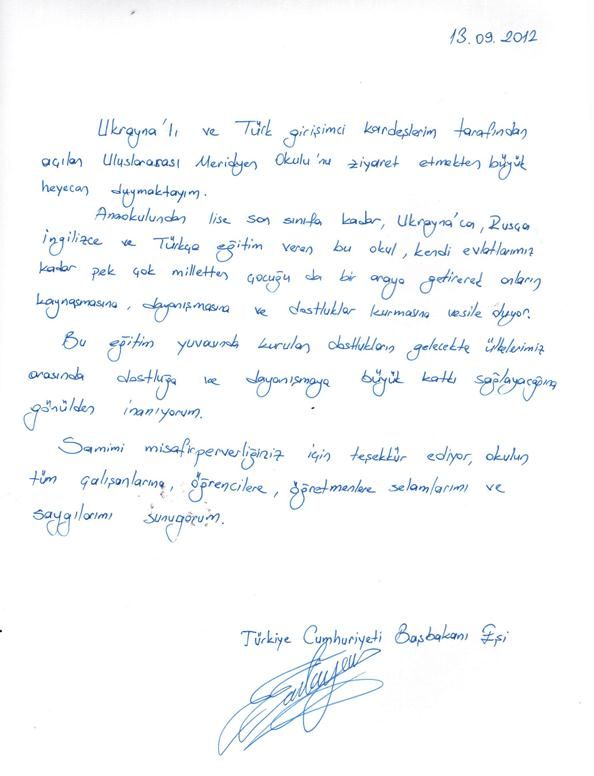 13.09.2012
Ukrayna'lı ve Türk girişimci kardeşlerim tarafından
açılan Uluslararası Meridyen Okulu'nu ziyaret etmekten büyük
heyecan duymaktayım.
Anaokulundan lise son sınıfa kadar, Ukrayna'ca, Rusça
ingilizce ve Türkçe eğitim veren bu okul, kendi evlatlarımız
kadar pek çok milletten çocuğu da bir araya getirerek onların
kaynaşmasına, dayanışmasına ve dostluklar kurmasına vesile oluyor.
Bu eğitim yuvasında kurulan dostlukların gelecekte ülkelerimiz
arasında dostluğa ve dayanışmaya büyük katkı sağlayacağına
gönülden inanıyorum.
Samimi misafirperverliğiniz için teşekkür ediyor, okulun
tüm çalışanlarına, öğrencilere, öğretmenlere selamlarımı ve
saygılarımı sunuyorum.
Türkiye Cumhuriyeti Başbakanı Eşi